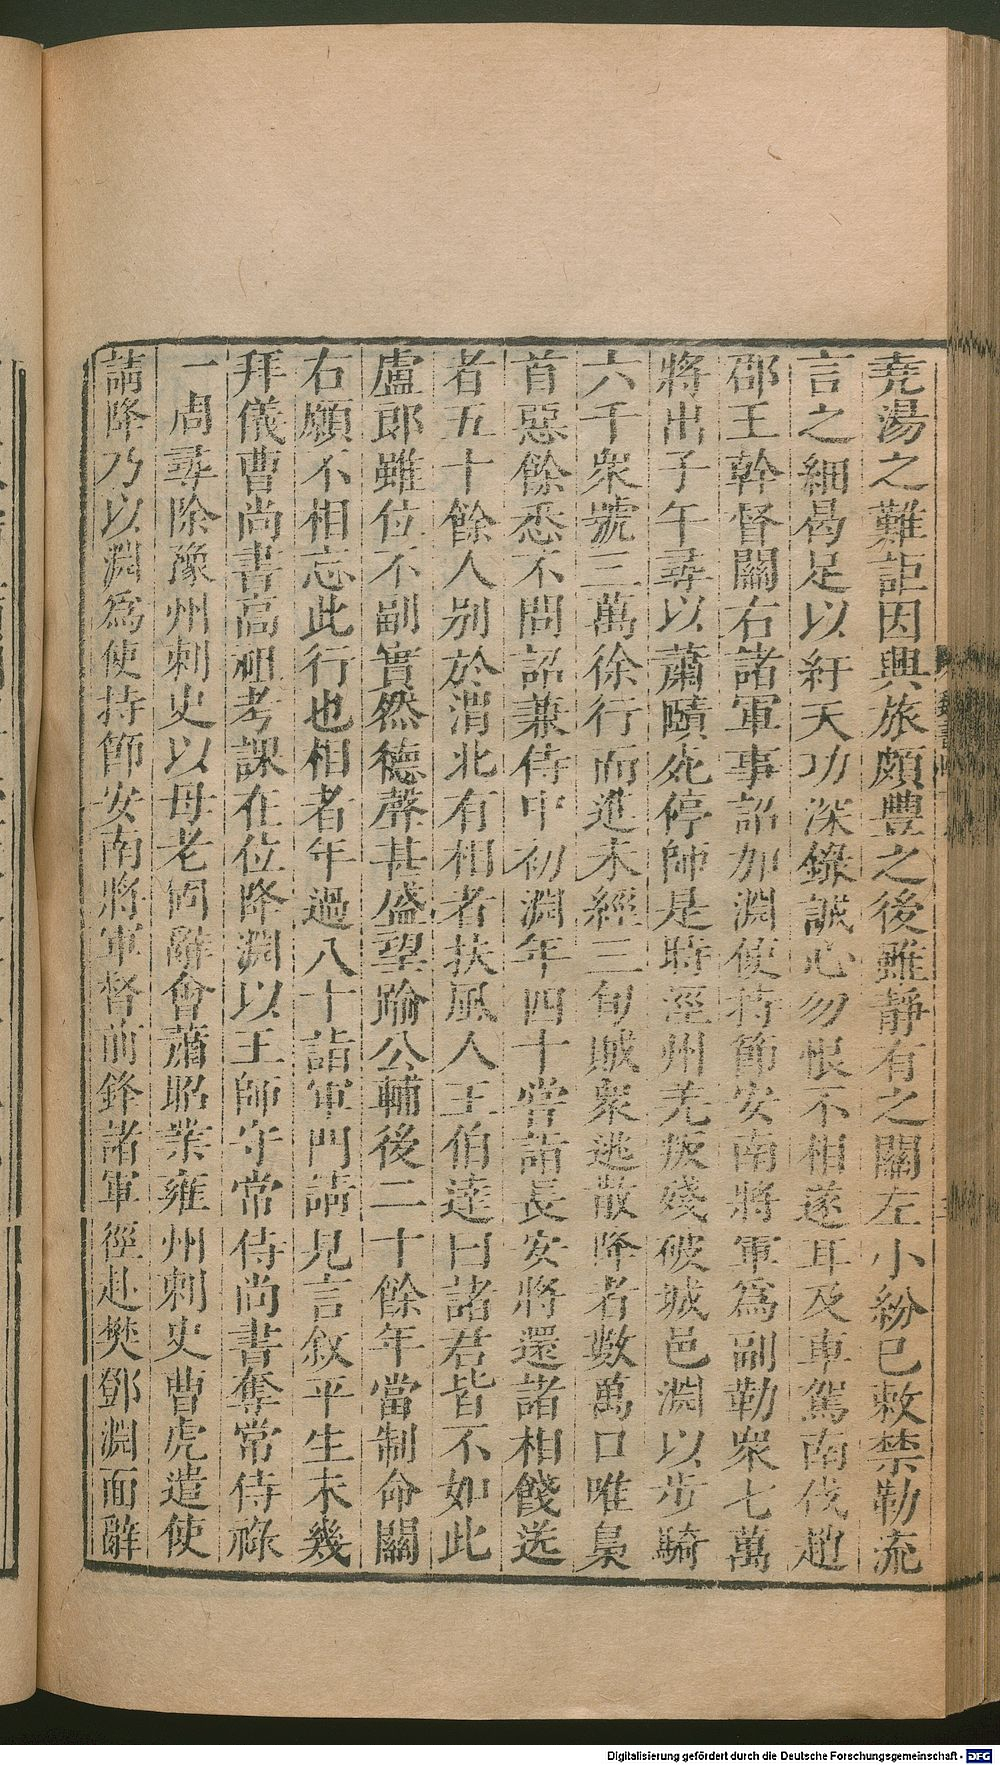 堯湯之難詎因興旅頗豐之後雖靜有之關左小紛已敕禁勒流
言之細曷足以紆天功深錄誠心勿恨不相遂耳及車駕南伐趙
郡王幹督關右諸軍事詔加淵使持節安南將軍爲副勒衆七萬
將出子午尋以蕭賾死停師是時涇州羌叛殘破城邑淵以步騎
六千衆號三萬徐行而進未經三旬賊衆逃散降者數萬口唯梟
首惡餘悉不問詔兼侍中初淵年四十嘗詣長安將還諸相餞送
者五十餘人別於渭北有相者扶風人王伯逹曰諸君皆不如此
盧郎雖位不副實然德聲甚盛望踰公輔後二十餘年當制命關
右願不相忘此行也相者年過八十詣軍門請見言敘平生未幾
拜儀曹尚書高祖考課在位降淵以王師守常侍尚書奪常侍祿
一周尋除豫州刺史以母老固辭會蕭昭業雍州刺史曹虎遣使
請降乃以淵爲使持節安南將軍督前鋒諸軍徑赴樊鄧淵面辭
Digitalisierung gefördert durch die Deutsche Forschungsgemeinschaft - DFG